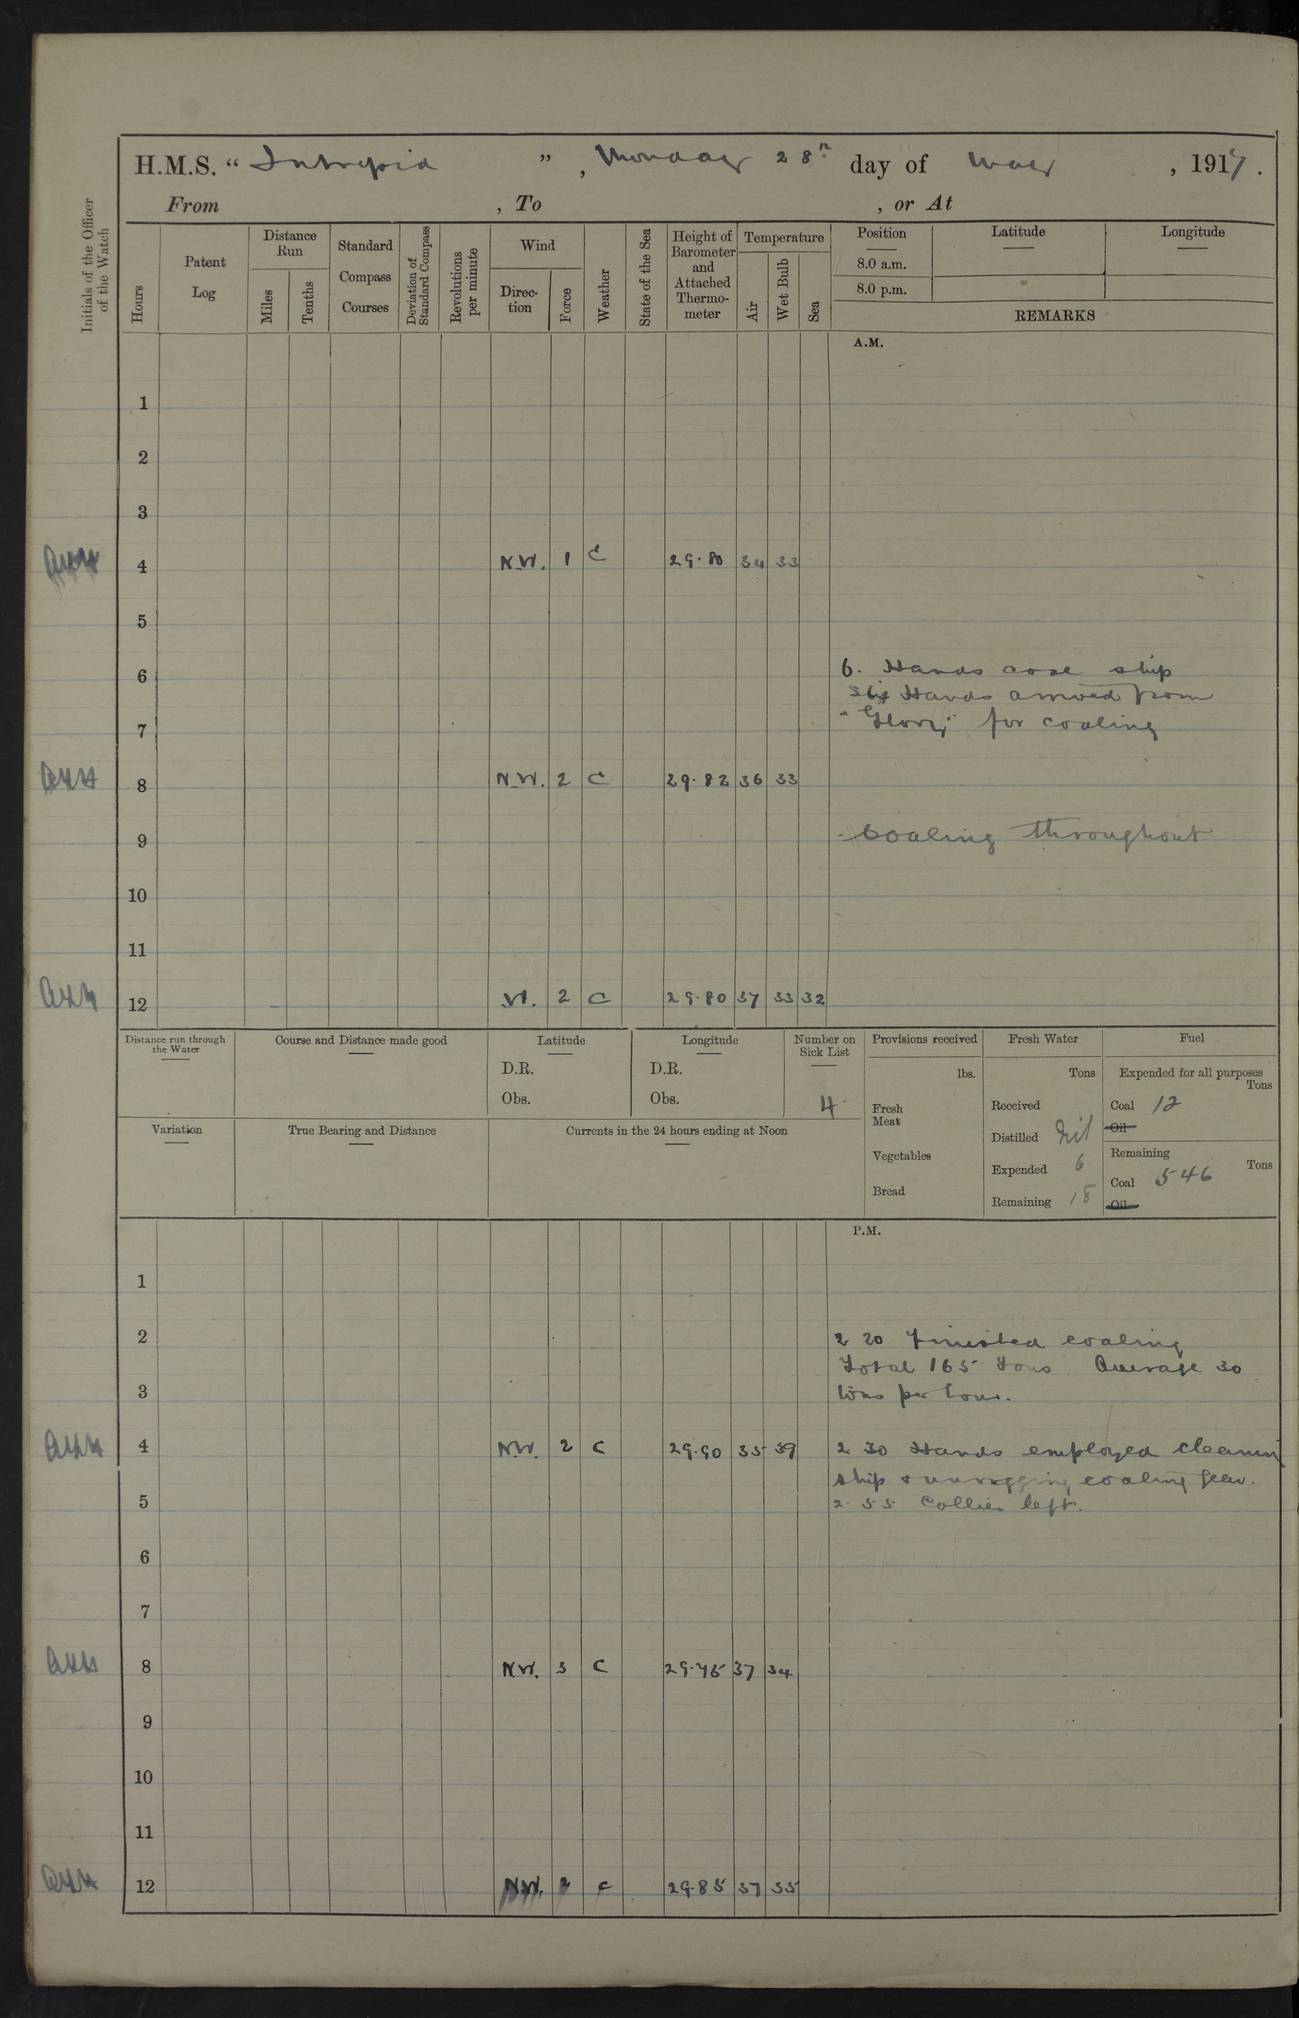 H.M.S. “ Intrepid ”, Monday 28th day of May, 1917.
From , To , or At
Initials of the Officer of the Watch
Hours
Patent Log
Distance Run
Miles
Tenths
Standard Compass Courses
Deviation of Standard Compass
Revolutions per minute
Wind
Direc-tion
Force
Weather
State of the Sea
Height of Barometer and Attached Thermo-meter
Temperature
Air
Wet Bulb
Sea
Position
8.0 a.m.
8.0 p.m.
Latitude
Longitude
REMARKS
A.M.
1
2
3
4 N.W. 1 C 29.80 34 33
5
6 6. Hands coal ship
Hands arrived from
7 "Glory" for coaling
8 N.W. 2 C 29.82 36 33
9 Coaling throughout
10
11
12 W. 2 C 29.80 37 33 32
Distance run through the Water
Course and Distance made good
Latitude
D.R.
Obs.
Longitude
D.R.
Obs.
Number on Sick List
4
Provisions received
lbs.
Fresh Meat
Vegetables
Bread
Fresh Water
Tons
Received
Distilled Nil
Expended 6
Remaining 18
Fuel
Expended for all purposes
Tons
Coal 12
Oil
Remaining
Tons
Coal 546
Oil
Variation
True Bearing and Distance
Currents in the 24 hours ending at Noon
P.M.
1
2 2 20 Finished coaling
Total 165 Tons. Average 30
3 tons per hour.
4 NW. 2 C 29.90 35 39 2 30 Hands employed cleaning
ship & unrigging coaling gear.
5 2.55 Collier left.
6
7
8 N.W. 3 C 29.75 37 34
9
10
11
12 N.W. 2 C 29.85 37 35